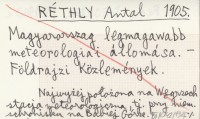 RÉTHLY Antal 1905.
Magyarország legmagasabb
meteorologiai állomása. –
Földrajzi Közlemények.
Najwyżej położona na Węgrzech
stacja meteorologiczna, tj. przy niem.
schronisku na Babiej Górze.